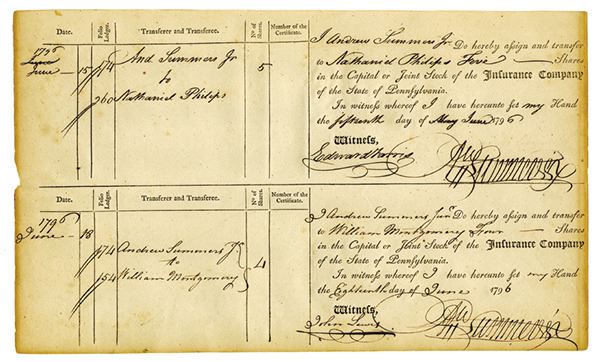 Date.
Folio Ledger.
Transferer and Transferee.
No of Shares.
Number of the Certificate.
1796
June — 15
174
And Summers Jr
5
to
60
Nathaniel Philips
I Andrew Summers Jr. Do hereby assign and transfer
to Nathaniel Philips Five — Shares
in the Capital or Joint Stock of the Insurance Company
of the State of Pennsylvania.
In witness whereof I have hereunto set my Hand
the fifteenth day of May June 1796
Witness,
Edward Harris
Summers
Date.
Folio Ledger.
Transferer and Transferee.
No of Shares.
Number of the Certificate.
1796
June — 18
174
Andrew Summers Jr
to
4
154
William Montgomery
I Andrew Summers Junr Do hereby assign and transfer
to William Montgomery Four — Shares
in the Capital or Joint Stock of the Insurance Company
of the State of Pennsylvania.
In witness whereof I have hereunto set my Hand
the Eighteenth day of June 1796
Witness,
John Lewis
Summers